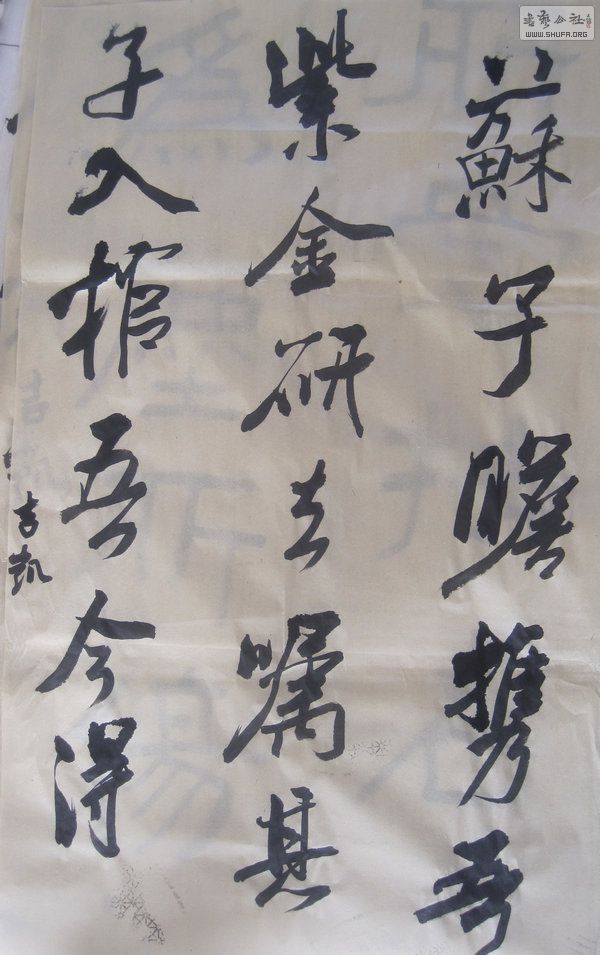 蘇子瞻攜吾
紫金研去嘱其
子入棺吾今得
吉凯
書藝公社
WWW.SHUFA.ORG